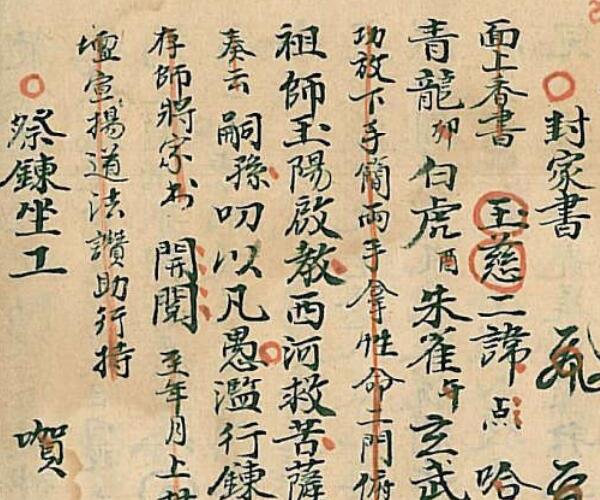 封家書
面上香書 玉慈二諱 点 哈
青龍卯白虎酉朱雀午玄武
功放下手簡兩手拿性命二門俯
祖師玉陽啟教西河救苦薩
奏云嗣孫叨以凡愚濫行鍊
存師將家書 開閱 至年月上
壇宣揚道法讚助行持
祭鍊坐工 㗎